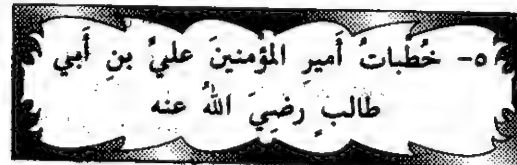 ٥- خُطباتُ أَميرِ المؤمنينَ عليِّ بنِ أَبي
طالبٍ رضِيَ اللهُ عنه